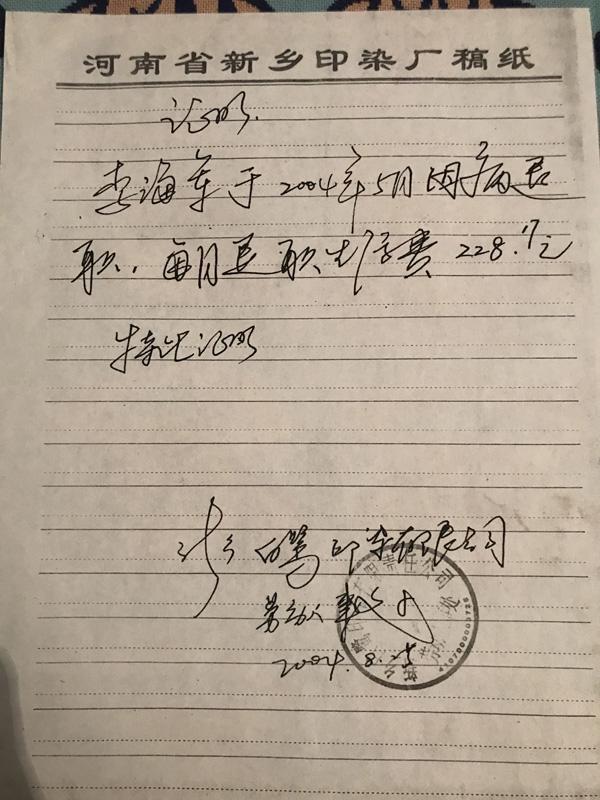 河南省新乡印染厂稿纸
证明.
李海军于2004年5月因病退
职，每月退职生活费228.17元
特此证明
白鹭印染有限公司
劳动人事
2004.8.25